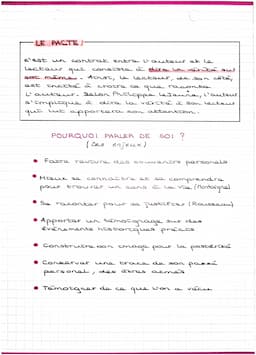 LE PACTE :
C'est un contrat entre l'auteur et le
lecteur qui consiste à dire la vérité sur
soi-même. Ainsi, le lecteur, de son côté,
est incité à croire ce que raconte
l'auteur. Selon Philippe Lejeune, l'auteur
s'implique à dire la vérité à son lecteur
qui lui apportera son attention.
POURQUOI PARLER DE SOI ?
(Les enjeux)
• Faire revivre des souvenirs personnels
• Mieux se connaître et se comprendre
pour trouver un sens à la vie (Montaigne)
• Se raconter pour se justifier (Rousseau)
• Apporter un témoignage sur des
événements historiques précis
• Construire son image pour la postérité
• Conserver une trace de son passé
personnel, des êtres aimés
• Témoigner de ce que l'on a vécu